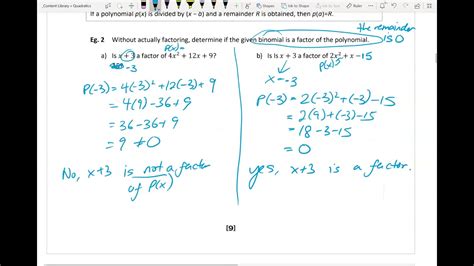 Content Library » Quadratics
If a polynomial p(x) is divided by (x – b) and a remainder R is obtained, then p(b)=R.
the remainder
Eg. 2 Without actually factoring, determine if the given binomial is a factor of the polynomial. is 0
p(x)=
a) Is x + 3 a factor of 4x² + 12x + 9?
-3
P(-3)=4(-3)²+12(-3)+9
=4(9)-36+9
=36-36+9
=9≠0
No, x+3 is not a factor
of P(x)
b) Is Is x + 3 a factor of 2x² + x – 15
p(x)
x=-3
P(-3)=2(-3)²+(-3)-15
=2(9)+(-3)-15
=18-3-15
=0
yes, x+3 is a factor.
[9]